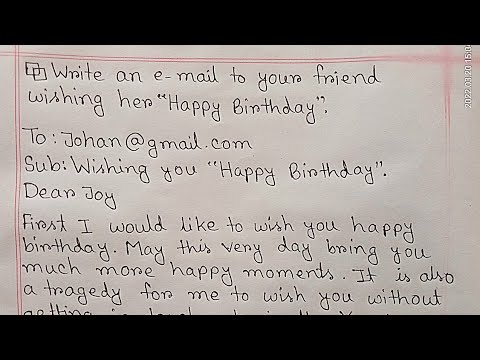 Write an e-mail to your friend
wishing her "Happy Birthday".
To: Johan@gmail.com
Sub: Wishing you "Happy Birthday".
Dear Joy
First I would like to wish you happy
birthday. May this very day bring you
much more happy moments. It is also
a tragedy for me to wish you without
getting
2022.01.20 15:0